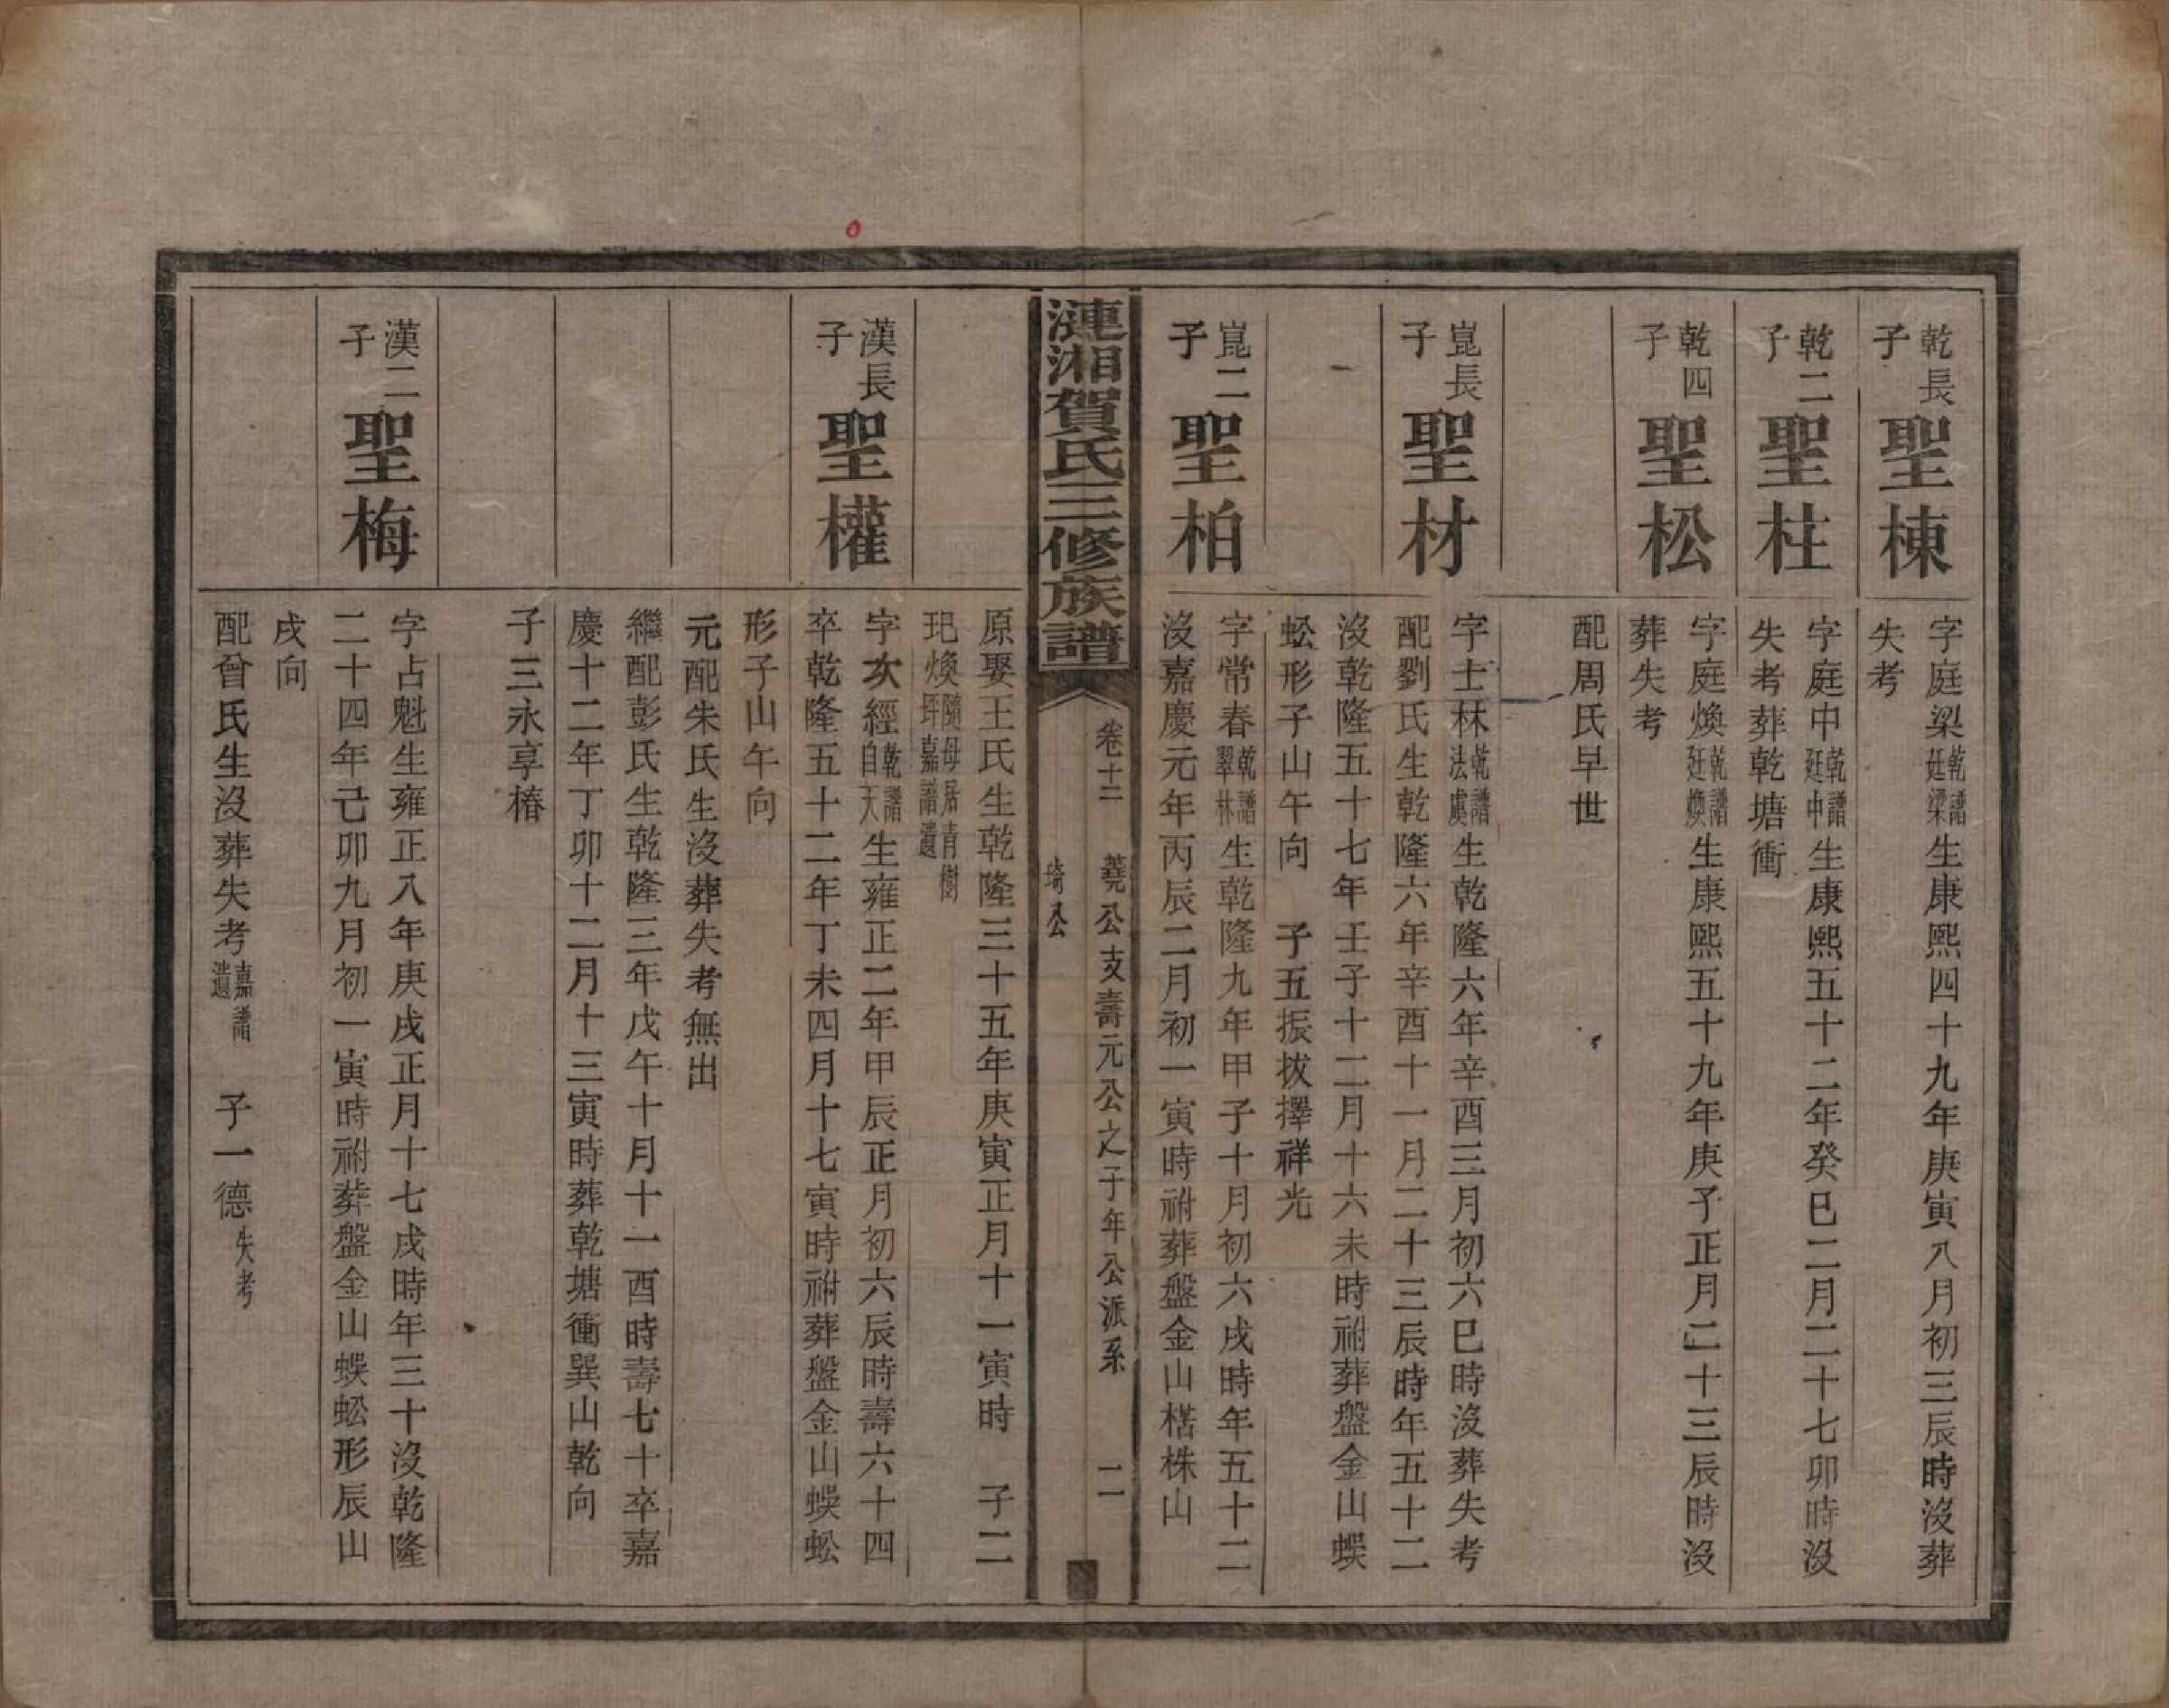 乾長子 聖棟
字庭梁乾譜廷梁生康熙四十九年庚寅八月初三辰時沒葬
失考
乾二子 聖柱
字庭中乾譜廷中生康熙五十二年癸巳二月二十七卯時沒
失考葬乾塘衝
乾四子 聖松
字庭煥乾譜廷煥生康熙五十九年庚子正月二十三辰時沒
葬失考
配周氏早世
崑長子 聖材
字士林乾譜法虞生乾隆六年辛酉三月初六巳時沒葬失考
配劉氏生乾隆六年辛酉十一月二十三辰時年五十二
沒乾隆五十七年壬子十二月十六未時祔葬盤金山蜈
蚣形子山午向 子五振拔擇祥光
崑二子 聖柏
字常春乾譜翠林生乾隆九年甲子十月初六戌時年五十二
沒嘉慶元年丙辰二月初一寅時祔葬盤金山楛株山
漣湘賀氏三修族譜
卷十二 蕘公支壽元公之子年公派系 二
埼公
原娶王氏生乾隆三十五年庚寅正月十一寅時 子二
玘煥隨母居青樹坪嘉譜遺
漢長子 聖權
字次經乾譜自天生雍正二年甲辰正月初六辰時壽六十四
卒乾隆五十二年丁未四月十七寅時祔葬盤金山蜈蚣
形子山午向
元配朱氏生沒葬失考無出
繼配彭氏生乾隆三年戊午十月十一酉時壽七十卒嘉
慶十二年丁卯十二月十三寅時葬乾塘衝巽山乾向
子三永享椿
漢二子 聖梅
字占魁生雍正八年庚戌正月十七戌時年三十沒乾隆
二十四年己卯九月初一寅時祔葬盤金山蜈蚣形辰山
戌向
配曾氏生沒葬失考嘉譜遺 子一德失考